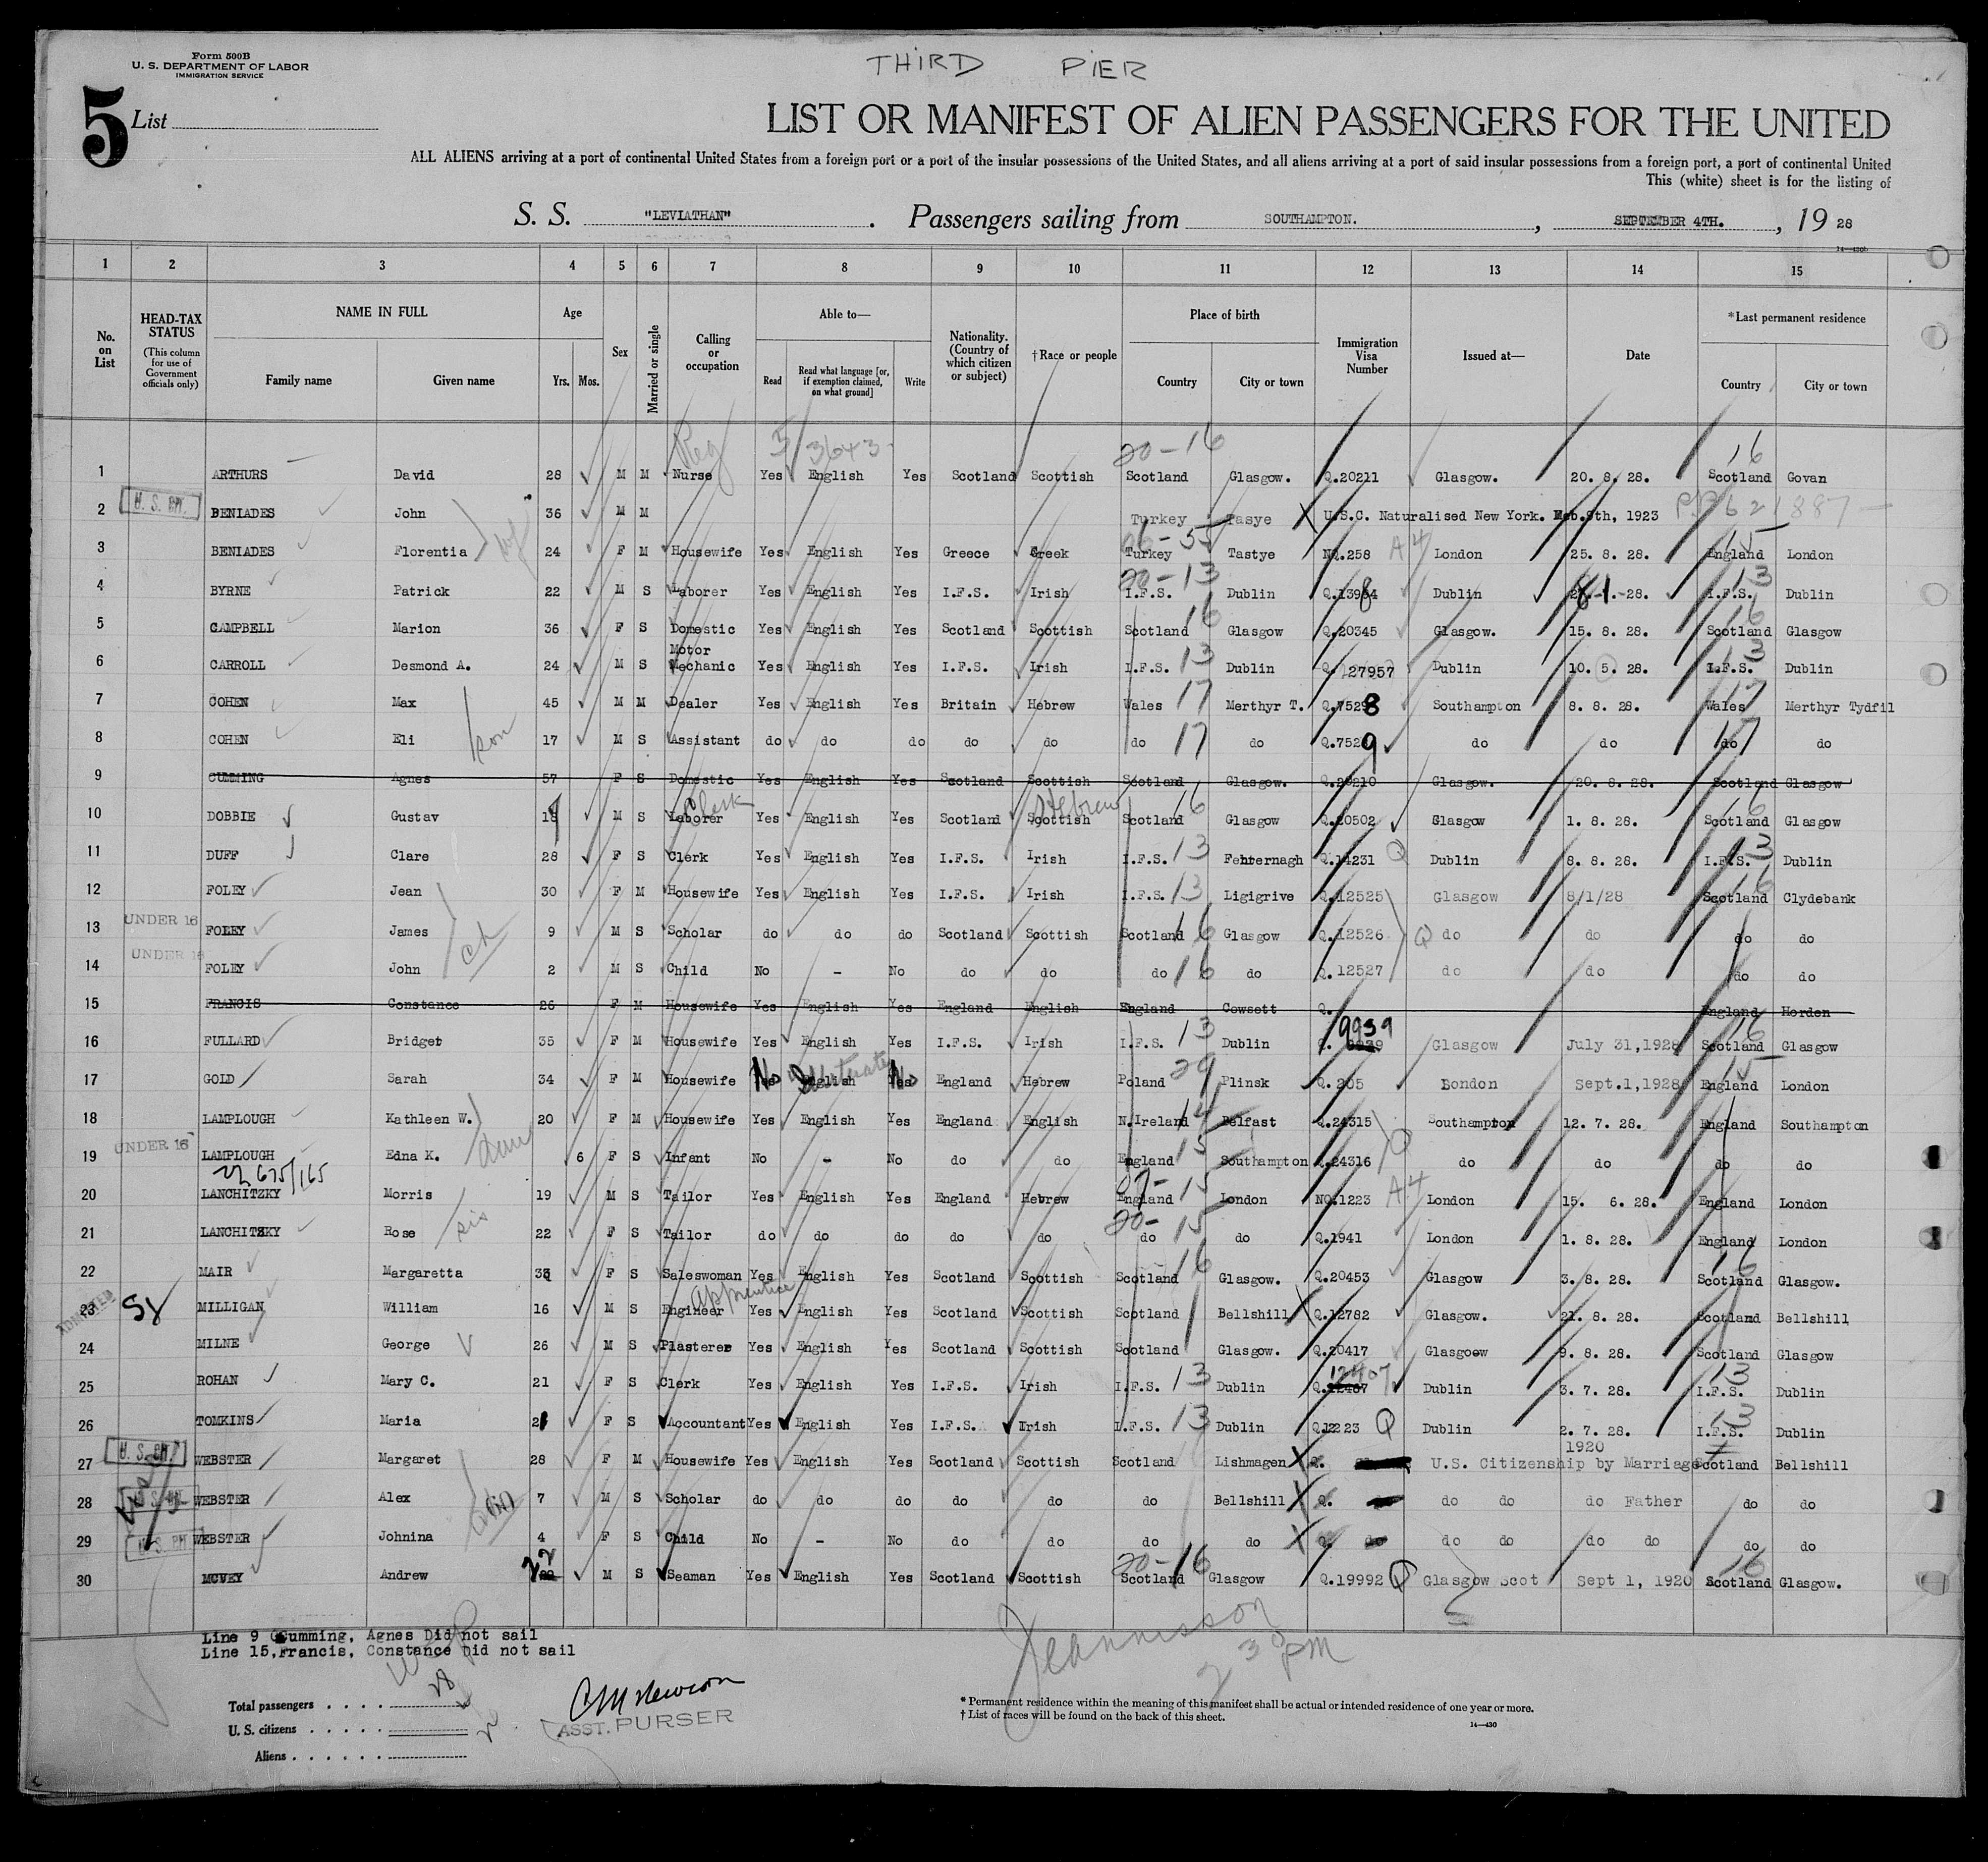 Form 500B
U. S. DEPARTMENT OF LABOR
IMMIGRATION SERVICE
THIRD PIER
5 List
LIST OR MANIFEST OF ALIEN PASSENGERS FOR THE UNITED
ALL ALIENS arriving at a port of continental United States from a foreign port or a port of the insular possessions of the United States, and all aliens arriving at a port of said insular possessions from a foreign port, a port of continental United
This (white) sheet is for the listing of
S. S. "LEVIATHAN". Passengers sailing from SOUTHAMPTON. , SEPTEMBER 4TH. , 19 28
1 2 3 4 5 6 7 8 9 10 11 12 13 14 15
No. on List
HEAD-TAX STATUS (This column for use of Government officials only)
NAME IN FULL Family name Given name
Age Yrs. Mos.
Sex
Married or single
Calling or occupation
Able to— Read Read what language [or, if exemption claimed, on what ground] Write
Nationality. (Country of which citizen or subject)
†Race or people
Place of birth Country City or town
Immigration Visa Number
Issued at—
Date
*Last permanent residence Country City or town
Reg 5/3643 20-16 16
1 ARTHURS David 28 M M Nurse Yes English Yes Scotland Scottish Scotland Glasgow. Q.20211 Glasgow. 20. 8. 28. Scotland Govan
2 BENIADES John 36 M M Turkey Tasye X U.S.C. Naturalised New York. 8th, 1923
3 BENIADES Florentia 24 F M Housewife Yes English Yes Greece Greek Turkey Tastye NQ.258 A4 London 25. 8. 28. England London
4 BYRNE Patrick 22 M S Laborer Yes English Yes I.F.S. Irish 20-13 I.F.S. Dublin Dublin 28. 13 I.F.S. Dublin
5 CAMPBELL Marion 36 F S Domestic Yes English Yes Scotland Scottish Scotland 16 Glasgow Q.20345 Glasgow. 15. 8. 28. 16 Scotland Glasgow
6 CARROLL Desmond A. 24 M S Motor Mechanic Yes English Yes I.F.S. Irish I.F.S. 13 Dublin Q. 27957 Dublin 10. 5. 28. 13 I.F.S. Dublin
7 COHEN Max 45 M M Dealer Yes English Yes Britain Hebrew Wales 17 Merthyr T. Q.7528 Southampton 8. 8. 28. 17 Wales Merthyr Tydfil
8 COHEN Eli 17 M S Assistant do do do do do do 17 do Q.7529 do do 17 do do
9 CUMMING Agnes 57 F S Domestic Yes English Yes Scotland Scottish Scotland Glasgow. Q.20210 Glasgow. 20. 8. 28. Scotland Glasgow
10 DOBBIE Gustav M S Laborer Clerk Yes English Yes Scotland Scottish Hebrew Scotland 16 Glasgow Q.20502 Glasgow 1. 8. 28. 16 Scotland Glasgow
11 DUFF Clare 28 F S Clerk Yes English Yes I.F.S. Irish I.F.S. 13 Q.14231 Q Dublin 8. 8. 28. 13 I.F.S. Dublin
12 FOLEY Jean 30 F M Housewife Yes English Yes I.F.S. Irish I.F.S. 13 Ligigrive Q.12525 Glasgow 8/1/28 16 Scotland Clydebank
13 UNDER 16 FOLEY James 9 M S Scholar do do do Scotland Scottish Scotland 16 Glasgow Q.12526 Q do do do do
14 UNDER 16 FOLEY John 2 M S Child No - No do do do 16 do Q.12527 do do do do
15 FRANCIS Constance 26 F M Housewife Yes English Yes England English England Cowsett Q. England Horden
16 FULLARD Bridget 35 F M Housewife Yes English Yes I.F.S. Irish I.F.S. 13 Dublin Q. 9939 Glasgow July 31,1928 16 Scotland Glasgow
17 GOLD Sarah 34 F M Housewife No English Illiterate No England Hebrew Poland 29 Plinsk Q.205 London Sept.1,1928 15 England London
18 LAMPLOUGH Kathleen W. 20 F M Housewife Yes English Yes England English N.Ireland 14 Belfast Q.24315 Southampton 12. 7. 28. England Southampton
19 UNDER 16 LAMPLOUGH Edna K. 6 F S Infant No - No do do England 15 Southampton Q.24316 Q do do do do
20 LANCHITZKY Morris 19 M S Tailor Yes English Yes England Hebrew England 15 London NQ.1223 A4 London 15. 6. 28. England London
21 LANCHITZKY Rose sis 22 F S Tailor do do do do do 20-15 do do Q.1941 London 1. 8. 28. England London
22 MAIR Margaretta F S Saleswoman Yes English Yes Scotland Scottish Scotland 16 Glasgow. Q.20453 Glasgow 3. 8. 28. 16 Scotland Glasgow.
23 ADMITTED MILLIGAN William 16 M S Apprentice Engineer Yes English Yes Scotland Scottish Scotland Bellshill X Q.12782 Glasgow. 21. 8. 28. Scotland Bellshill
24 MILNE George 26 M S Plasterer Yes English Yes Scotland Scottish Scotland Glasgow. Q.20417 Glasgoew 9. 8. 28. Scotland Glasgow
25 ROHAN Mary C. 21 F S Clerk Yes English Yes I.F.S. Irish I.F.S. 13 Dublin Q. 12407 Dublin 3. 7. 28. 13 I.F.S. Dublin
26 TOMKINS Maria F S Accountant Yes English Yes I.F.S. Irish I.F.S. 13 Dublin Q.12223 Q Dublin 2. 7. 28. 13 I.F.S. Dublin
27 WEBSTER Margaret 28 F M Housewife Yes English Yes Scotland Scottish Scotland Lishmagen X Q. U.S. Citizenship by Marriage 1920 Scotland Bellshill
28 WEBSTER Alex 7 M S Scholar do do do do do do Bellshill X Q. do do do Father do do
29 WEBSTER Johnina 4 F S Child No - No do do do do X Q. do do do do do do do
30 MCVEY Andrew 22 M S Seaman Yes English Yes Scotland Scottish 20-16 Scotland Glasgow Q.19992 Q Glasgow Scot Sept 1, 1920 16 Scotland Glasgow.
Line 9 Cumming, Agnes Did not sail
Line 15,Francis, Constance Did not sail
Total passengers
U. S. citizens
Aliens
ASST. PURSER
* Permanent residence within the meaning of this manifest shall be actual or intended residence of one year or more.
† List of races will be found on the back of this sheet.
14—430